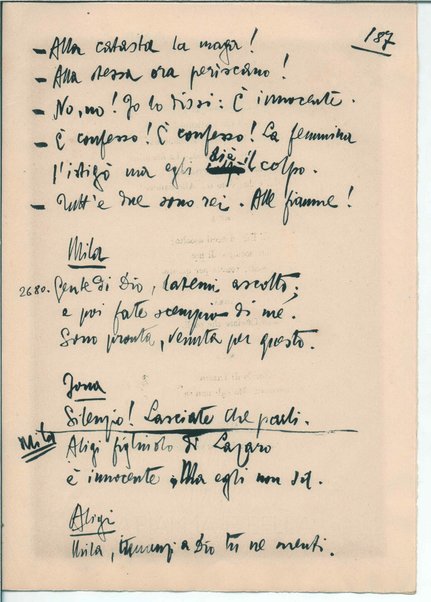 187
– Alla catasta la maga!
– Alla stessa ora periscano!
– No, no! Io lo dissi: È innocente.
– È confesso! È confesso! La femmina
l'istigò ma egli diè il colpo.
– Tutt'e due sono rei. Alle fiamme!
Mila
2680. Gente di Dio, datemi ascolto;
e poi fate scempio di me.
Sono pronta, venuta per questo.
Iona
Silenzio! Lasciate che parli.
Mila
Aligi figliuolo di Lazaro
è innocente. Ma egli non sa.
Aligi
Mila, innanzi a Dio tu ne menti.